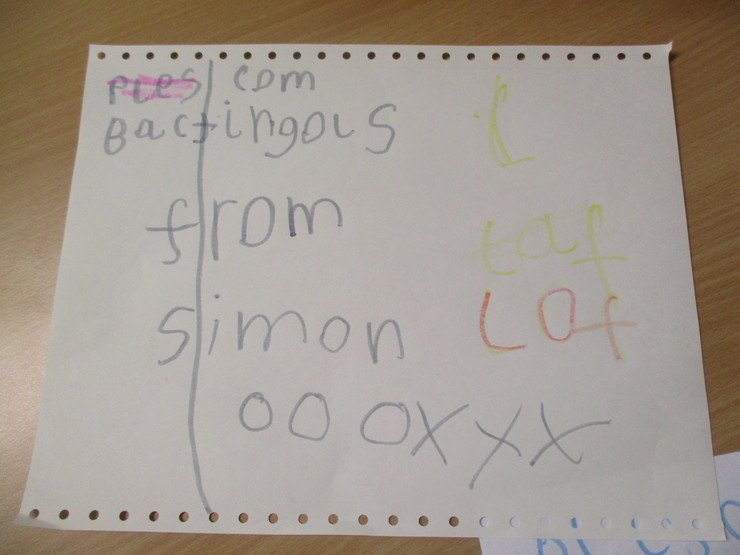 Ples com
Bactingous
from
simon
ooo xxx
i
taf
Laf